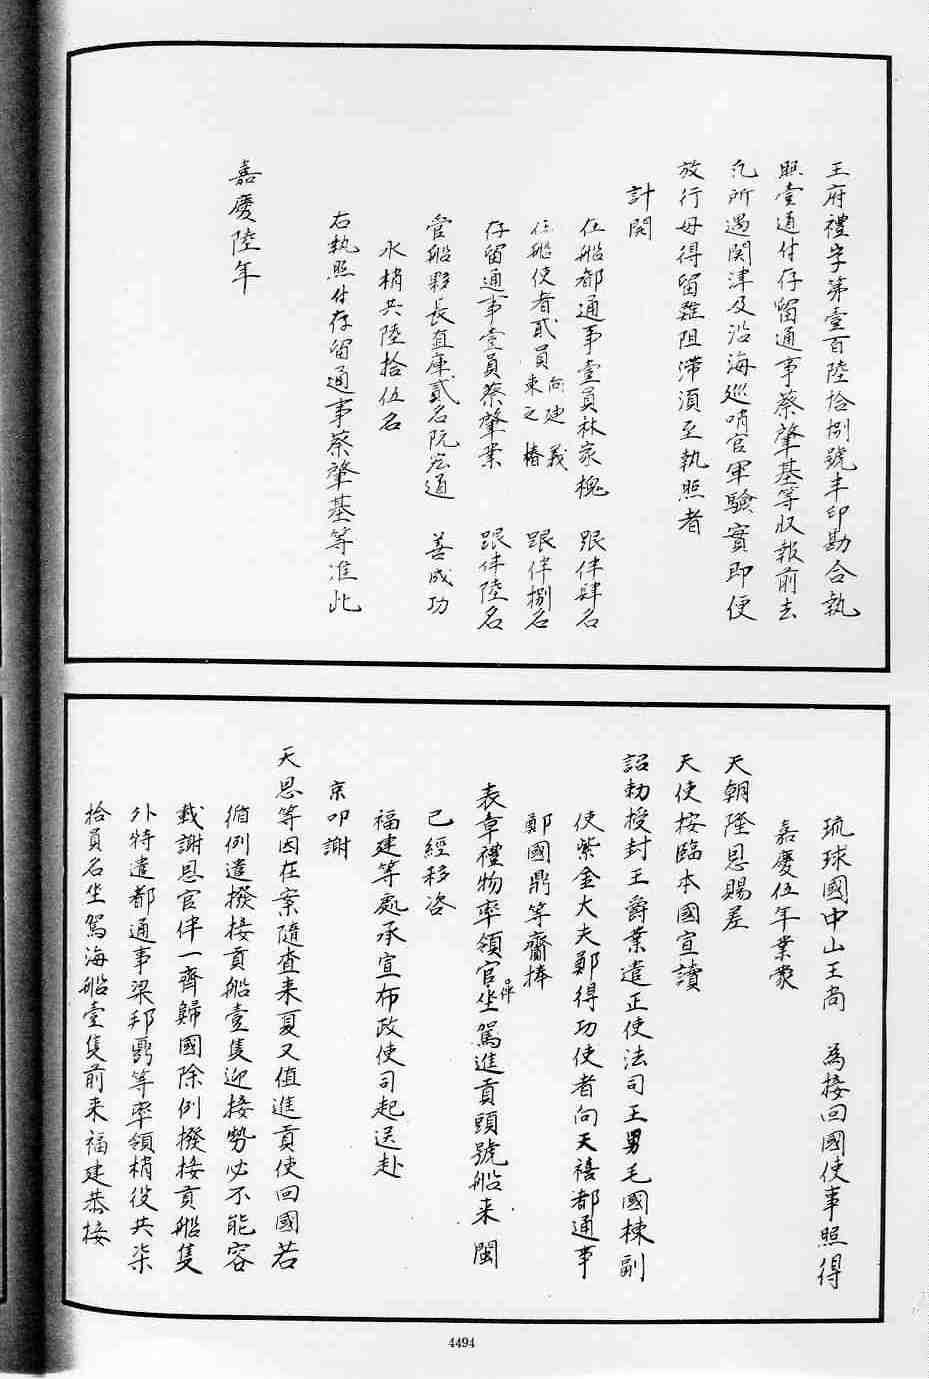 王府禮字第壹百陸拾捌號半印勘合執
照壹通付存留通事蔡肇基等收報前去
凢所遇関津及沿海巡哨官軍驗實即便
放行毋得留難阻滯須至執照者
計開
在船都通事壹員林家槐 跟伴肆名
在船使者貳員 向廸義 東之椿 跟伴捌名
存留通事壹員蔡肇業 跟伴陸名
管船夥長直庫貳名阮宏通 善成功
水梢共陸拾伍名
右執照付存留通事蔡肇基等准此
嘉慶陸年
琉球國中山王尚 為接回國使事照得
嘉慶伍年業蒙
天朝隆恩賜差
天使按臨本國宣讀
詔勅授封王爵業遣正使法司王舅毛國棟副
使紫金大夫鄭得功使者向天禧都通事
鄭國鼎等齎捧
表章禮物率領官伴坐駕進貢頭號船来閩
已經移咨
福建等處承宣布政使司起送赴
京叩謝
天恩等因在案隨查来夏又值進貢使回國若
循例遣撥接貢船壹隻迎接勢必不能容
載謝恩官伴一齊歸國除例撥接貢船隻
外特遣都通事梁邦弼等率領梢役共柒
拾員名坐駕海船壹隻前来福建恭接
4494